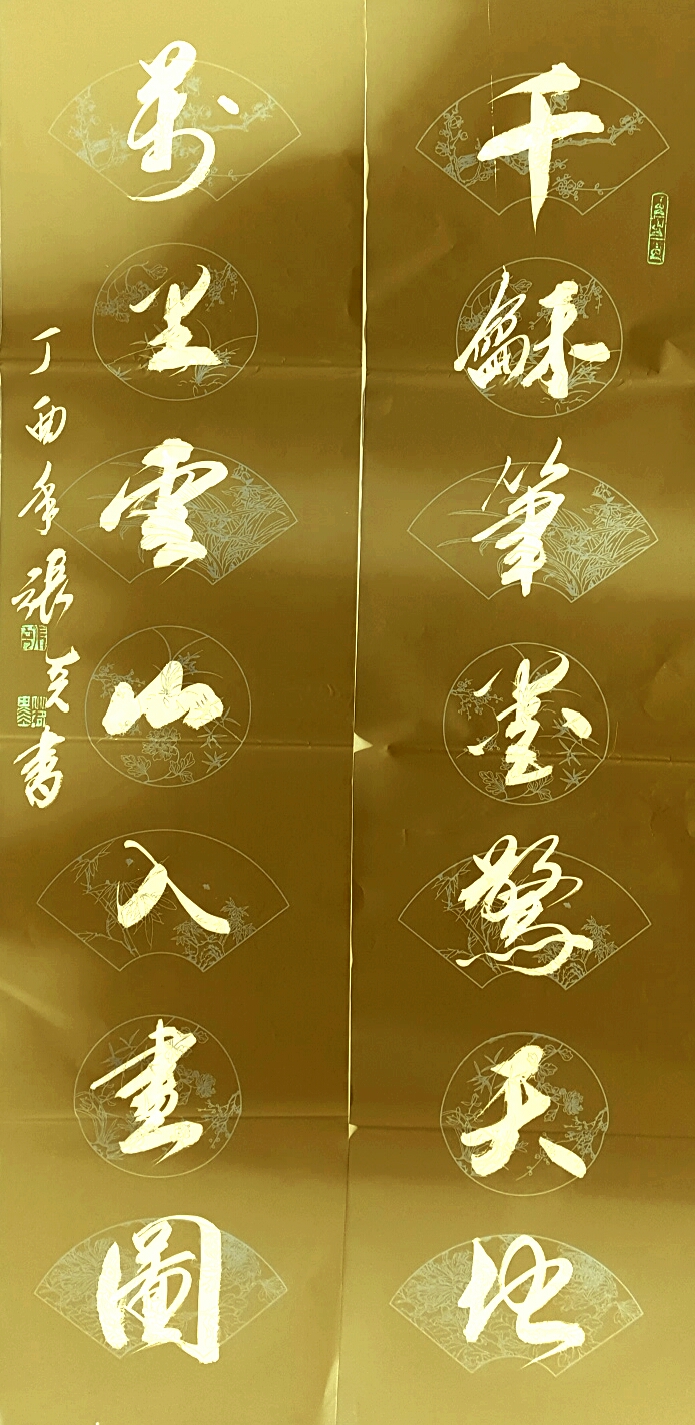 千龢筆墨驚天地
萬里雲山入畫圖
丁酉年張書